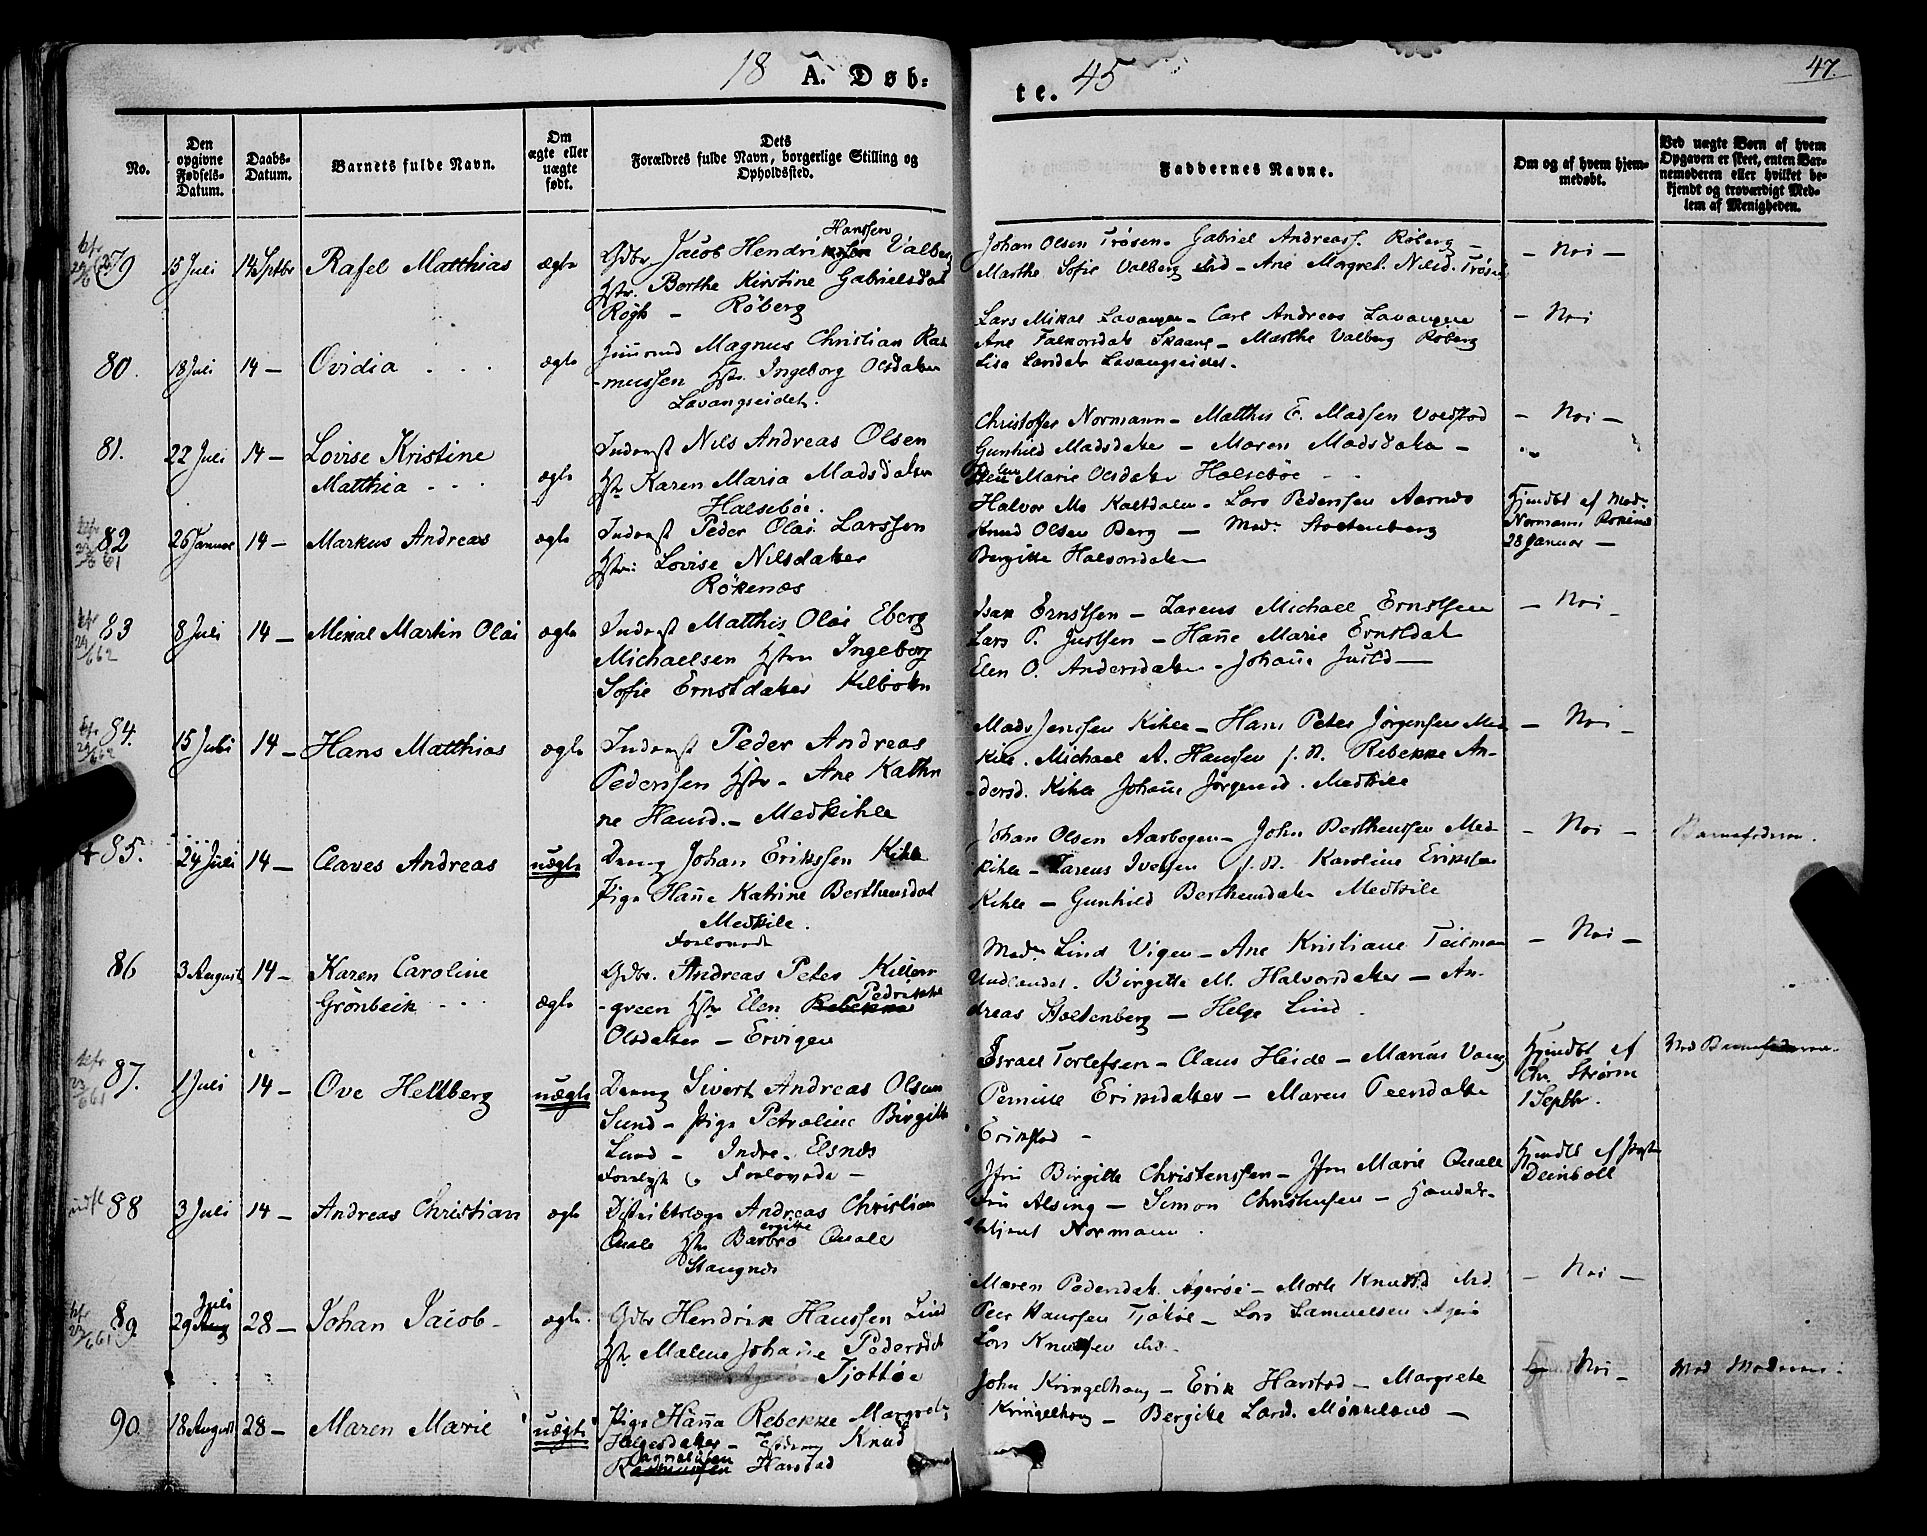 18 A. Døb:
te. 45
47.
No.
Den opgivne Fødsels-Datum.
Daabs-Datum.
Barnets fulde Navn.
Om ægte eller uægte født.
Dets Forældres fulde Navn, borgerlige Stilling og Opholdssted.
Faddernes Navne.
Om og af hvem hjemmedøbt.
Ved uægte Børn af hvem Opgaven er skeet, enten Barnemoderen eller hvilket bekjendt og troværdigt Medlem af Menigheden.
79 15 Juli 14 Septbr Rafel Matthias ægte
Gdbr Jacob Hendrik Hanssen Valberg
Hstr. Berthe Kirstine Gabrielsdat
Røberg
Johan Olsen Trøsen - Gabriel Andreass. Røberg -
Marthe Sofie Valberg ibid - Ane Margret. Nilsd. Trøsen
- Nei -
80. 18 Juli 14 - Ovidia ægte
Magnus Christian Ras
-mussen Hstr. Ingeborg Olsdatter
Lavangseidet.
Lars Mikal Lavangen - Carl Andreas Lavangen
Ane Falkorsdatt Skaane - Marthe Valberg Røberg
Lisa Larsdatt Lavangseidet.
- Nei
81. 22 Juli 14 - Lovise Kristine
Matthia ægte
Inderst Nils Andreas Olsen
Hstr Karen Maria Madsdatter
Halsebøe.
Christoffer Normann - Matthis E. Madsen Voldstad
Gunhild Madsdatter - Maren Madsdatter -
Marie Olsdatter Halsebøe
- Nei -
82 26 Januar 14 - Markus Andreas ægte
Inderst Peder Olai Larssen
Hstr: Lovise Nilsdatter
Røkenæs
Halvor Mo Kaltdalen - Lars Pederssen Aarnæs
Knud Olsen Berg - Mad. Stoltenberg
Bergitte Halvorsdatter
Hjemdbt af Mad.
Normann Røkenæs
28 Januar -
83 8 Juli 14 - Mikal Martin Olai ægte
Inderst Matthis Olai Eberg
Michaelsen Hstru Ingeborg
Sofie Ernstdatter Kilbotn
Isak Ernstsen - Zarens Michael Ernstsen
Lars P. Justsen - Hane Marie Ernstdat
Elen O. Andersdatter - Johane Justd -
- Nei -
84. 15 Juli 14 - Hans Matthias ægte
Inderst Peder Andreas
Pederssen Hstr - Ane Kathri
ne Hansd. - Medkihle
Mads Jenssen Kihle - Hans Peter Jørgensen Med
Kihle. Michael A. Hanssen s. N. Rebekke An-
dersd. Kihle Johane Jørgensd. Medkile
- Nei -
85. 24 Juli 14 - Claves Andreas uægte
Dreng Johan Erikssen Kihle
Pige Hane Katrine Berthensdat
Medkile.
Forlovede
Johan Olsen Aarbogen - John Berthenssen Med
Kihle - Zarens Iversen s. N. Karoline Eriksen
Kihle - Gunhild Berthensdatter Medkile
- Nei -
Barnefaderen.
86 3 August 14 - Karen Caroline
Grönbeck ægte
Gdbr. Andreas Peter Killen-
-green Hstr Elen Pedrikke
Olsdatter - Ervigen
Mad. Lind Vigen - Ane Kristiane Teilman
Undlandet. Birgitte M. Halvorsdatter - An-
dreas Stoltenberg - Helge Lind.
- Nei -
87. 1 Juli 14 - Ove Hellberg uægte
Dreng Sivert Andreas Olsen
Sund - Pige Petroline Birgitte
Lund - Indre - Elsnæs
Forlovede -
Israel Torlefsen - Claus Heide - Marius Vang
Pernille Eriksdatter - Maren Peersdatter
Erikstad -
Hjemdbt af
Chr. Strøm
1 Septbr.
Ved Barnefaderen
88 3 Juli 14 - Andreas Christian ægte
Distriktslæge Andreas Christian
Quale Hstr Barbro Quale
Stangnes
Jfru Birgitte Christenssen - Jfru Marie Quale
Fru Alsing - Simon Christensen - Handels-
betjent Normann.
Hjemdbt af Prest
Deinboll
89 29 Juli 28 - Johan Jacob - ægte.
Gdbr Hendrik Hanssen Lind
Hstr Malene Johane Pedersdat
Tjottøe
Maren Pedersdat. Agerøe - Marte Knudsd ibid.
Peer Hanssen Tjottøe - Lars Samuelsen Agerø
Lars Knudsen ibid. -
- Nei -
90. 18 August 28 - Maren Marie uægte
Pige Hana Rebekke Margrete
Helgesdatter - Knud
Rasmussen Harstad
John Kringelhaug - Erik Harstad - Margrete
Kringelhaug - Bergitte Larsd. Mækkeland -
Nei -
Ved Moderen.